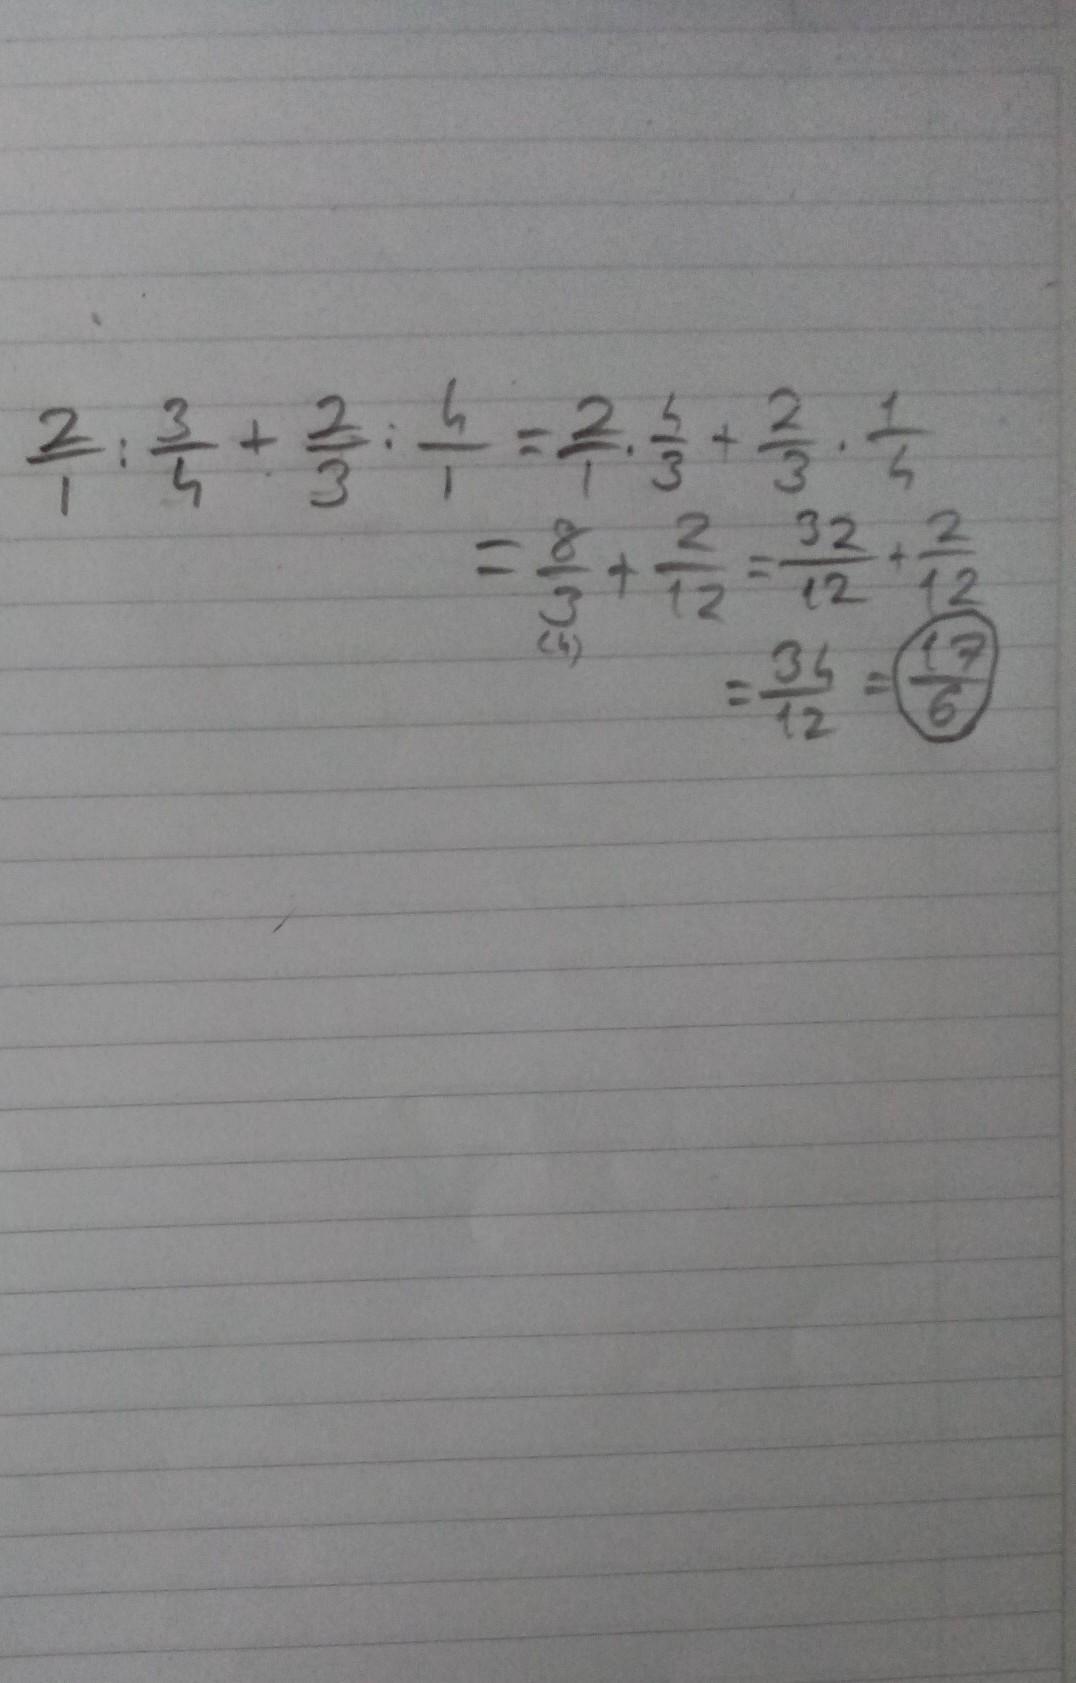 2/1 : 3/4 + 2/3 : 4/1 = 2/1 . 4/3 + 2/3 . 1/4
= 8/3 (4) + 2/12 = 32/12 + 2/12
= 34/12 = 17/6